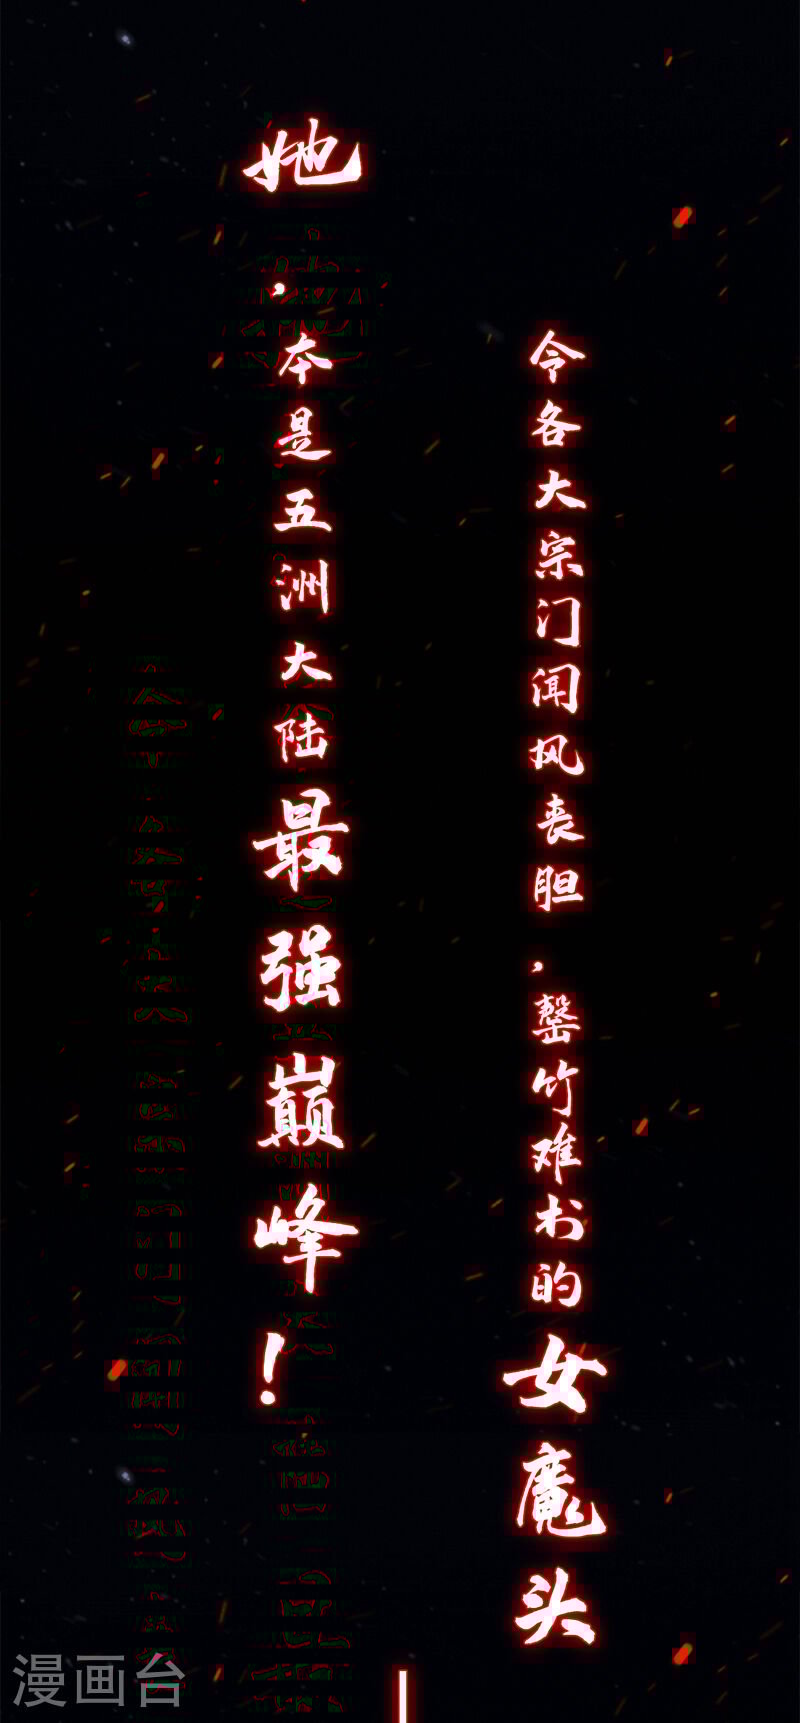 她，本是五洲大陆最强巅峰！
令各大宗门闻风丧胆，罄竹难书的女魔头
漫画台